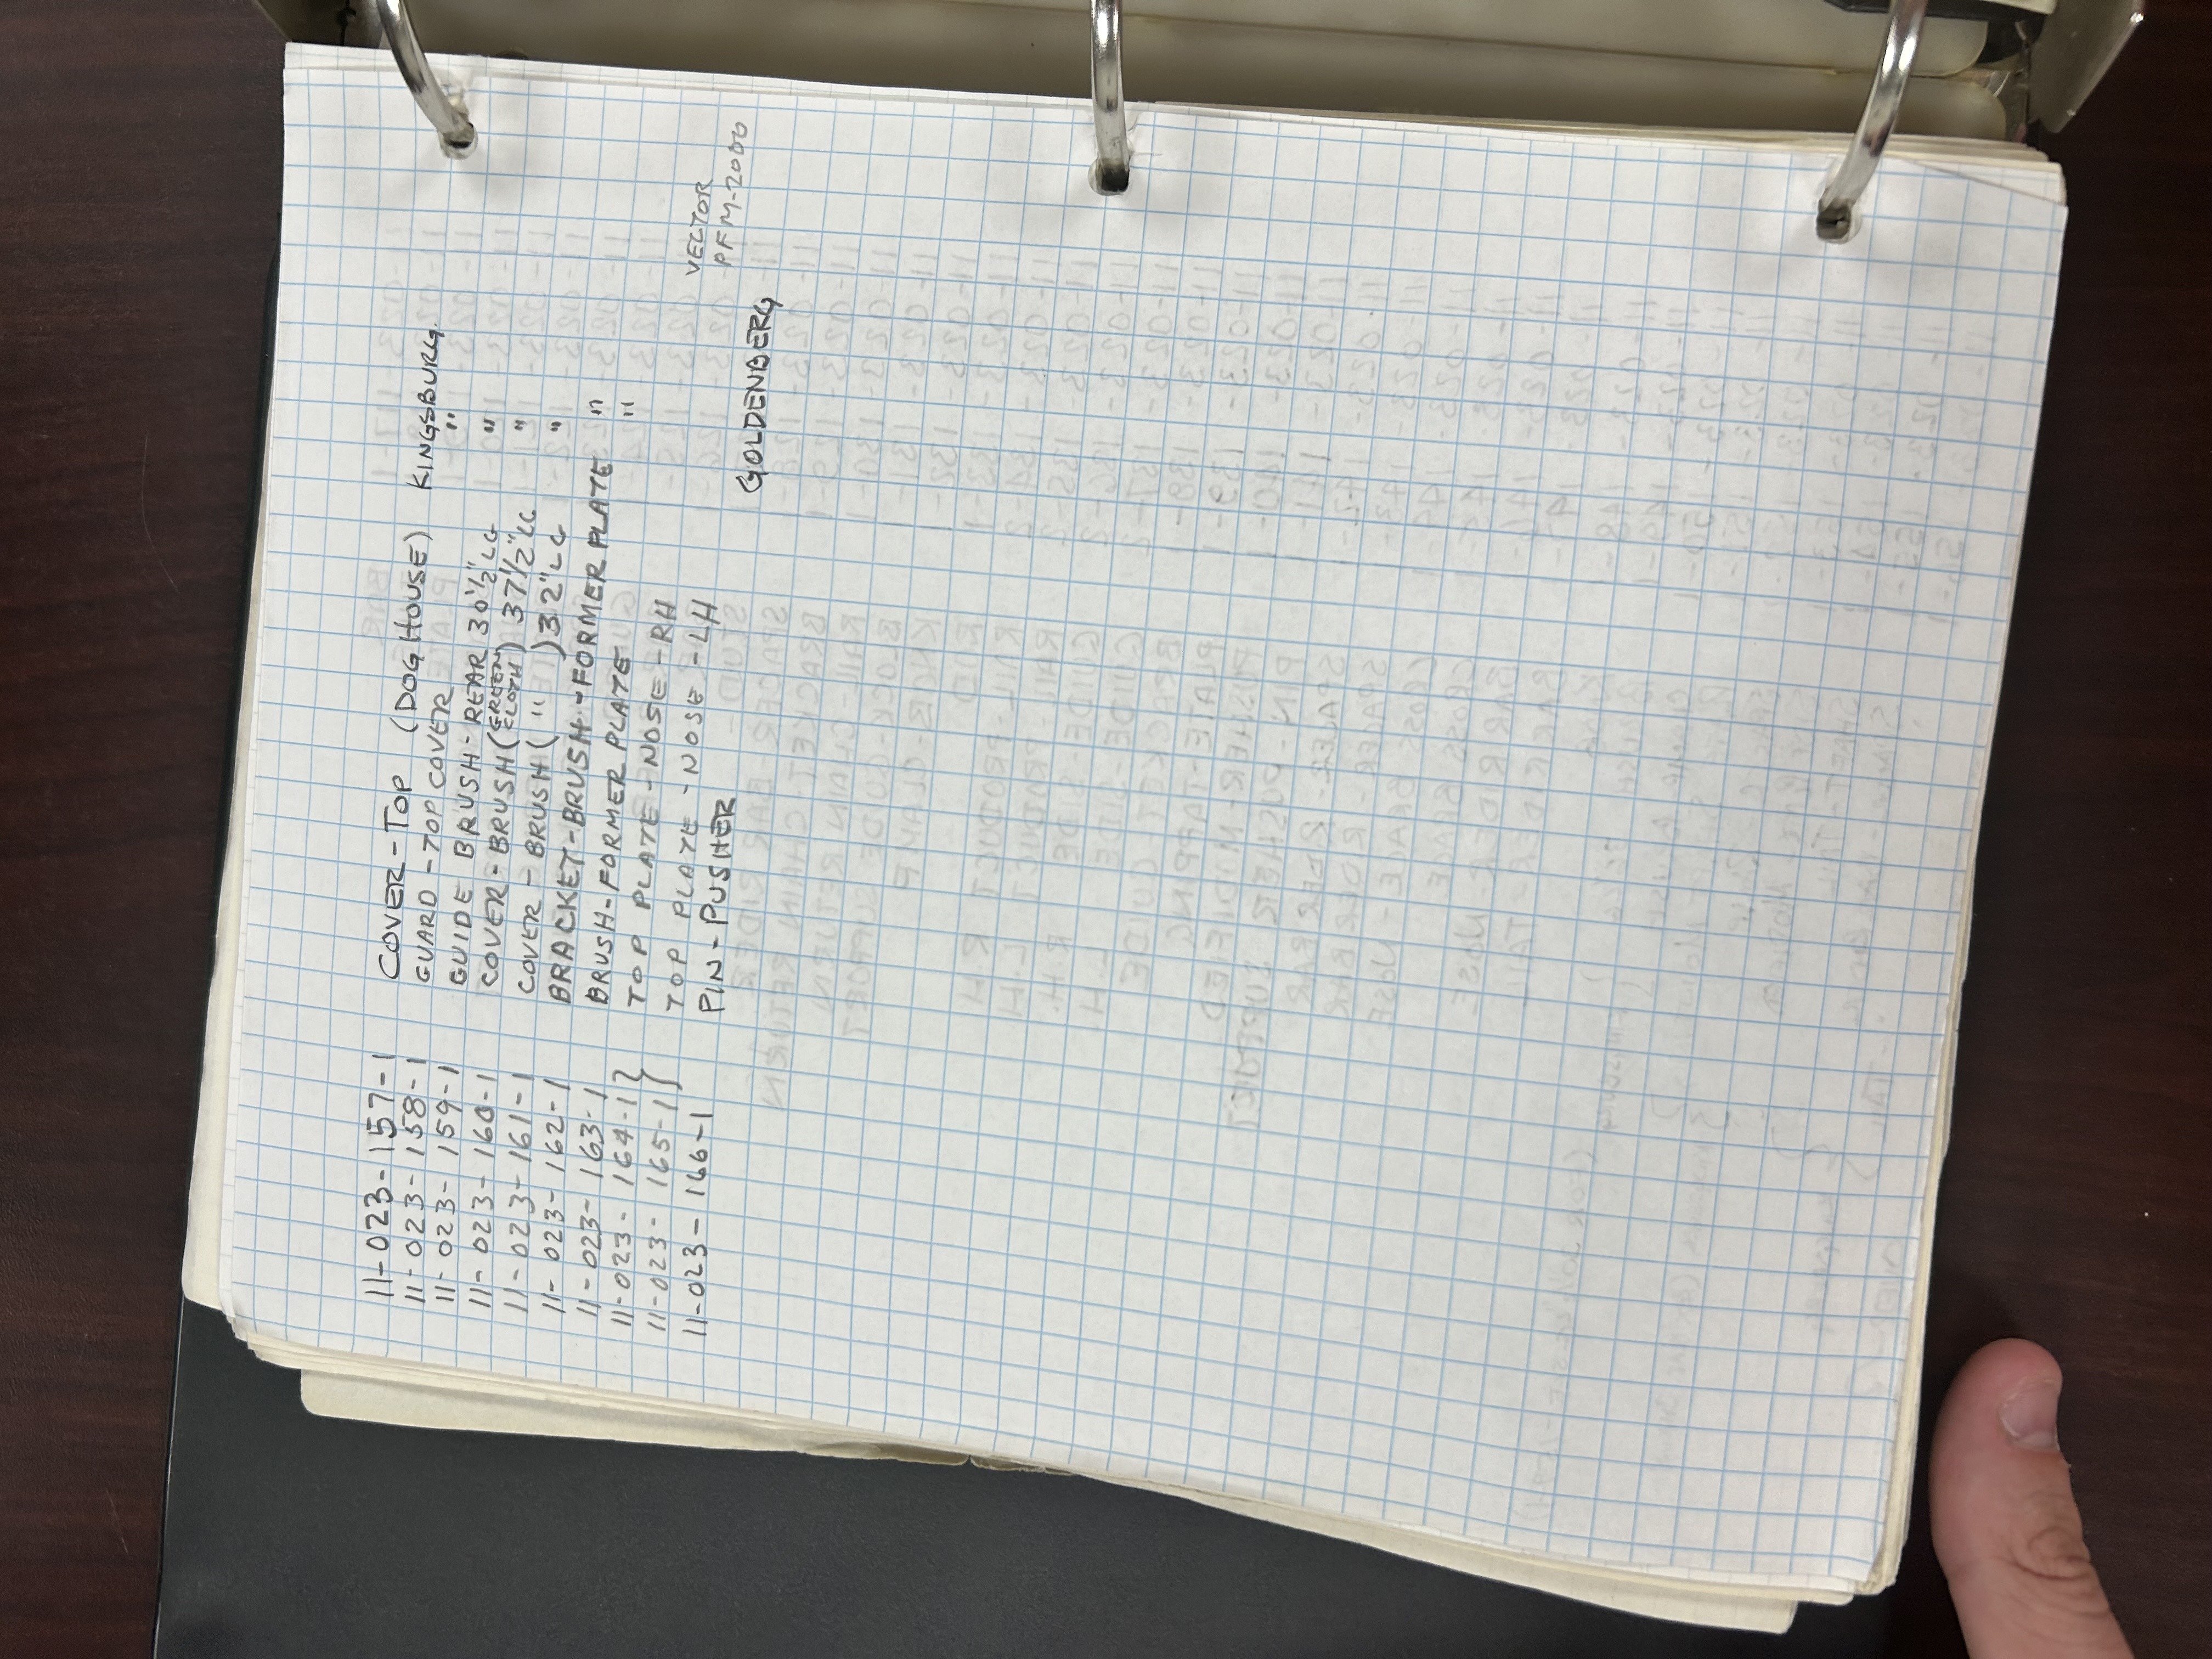 11-023-157-1 COVER-TOP (DOG HOUSE) KINGSBURG.
11-023-158-1 GUARD-TOP COVER "
11-023-159-1 GUIDE BRUSH-REAR 30 1/2" LG "
11-023-160-1 COVER-BRUSH (GREEN CLOTH) 37 1/2" LG "
11-023-161-1 COVER-BRUSH ( " ) 32" LG "
11-023-162-1 BRACKET-BRUSH-FORMER PLATE "
11-023-163-1 BRUSH-FORMER PLATE "
11-023-164-1 } TOP PLATE-NOSE-RH
11-023-165-1 } TOP PLATE-NOSE-LH VECTOR PFM-2000
11-023-166-1 PIN-PUSHER GOLDENBERG